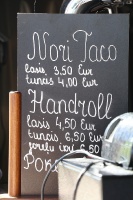 Nori Taco
lasis 3,50 Eur
tuncis 4,00 Eur
Handroll
lasis 4,50 Eur
tuncis 6,50 Eur
6,50 Eur
Poke